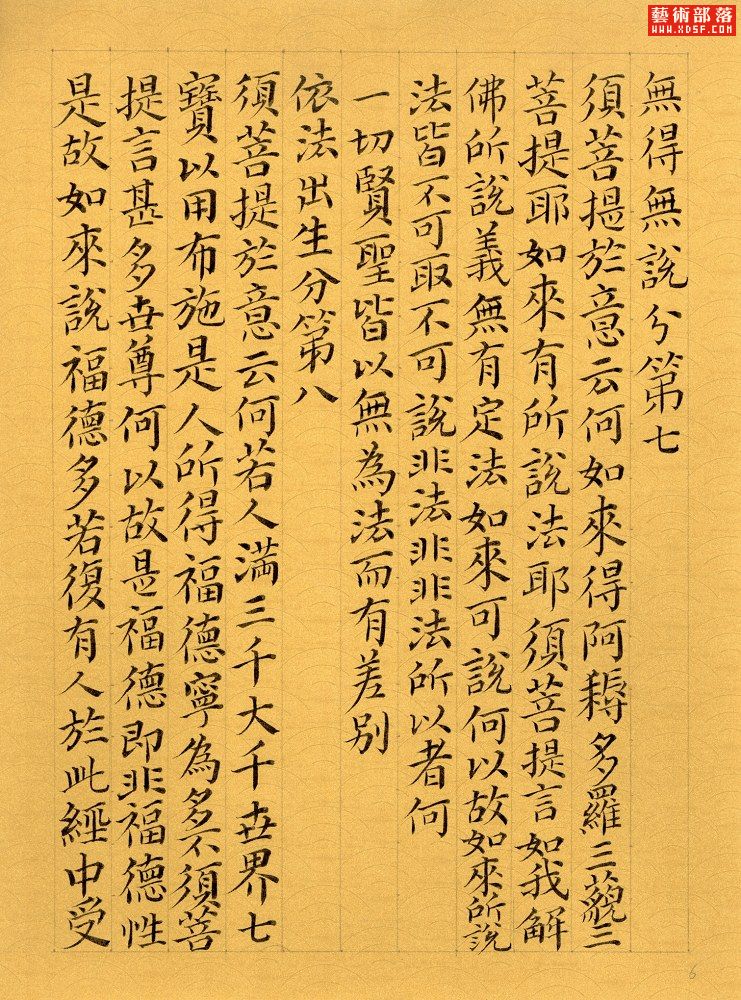 藝術部落
WWW.XDSF.COM
無得無說分第七
須菩提於意云何如來得阿耨多羅三藐三
菩提耶如來有所說法耶須菩提言如我解
佛所說義無有定法如來可說何以故如來所說
法皆不可取不可說非法非非法所以者何
一切賢聖皆以無為法而有差别
依法出生分第八
須菩提於意云何若人満三千大千世界七
寶以用布施是人所得福德寧為多不須菩
提言甚多世尊何以故是福德即非福德性
是故如來說福德多若復有人於此經中受
6